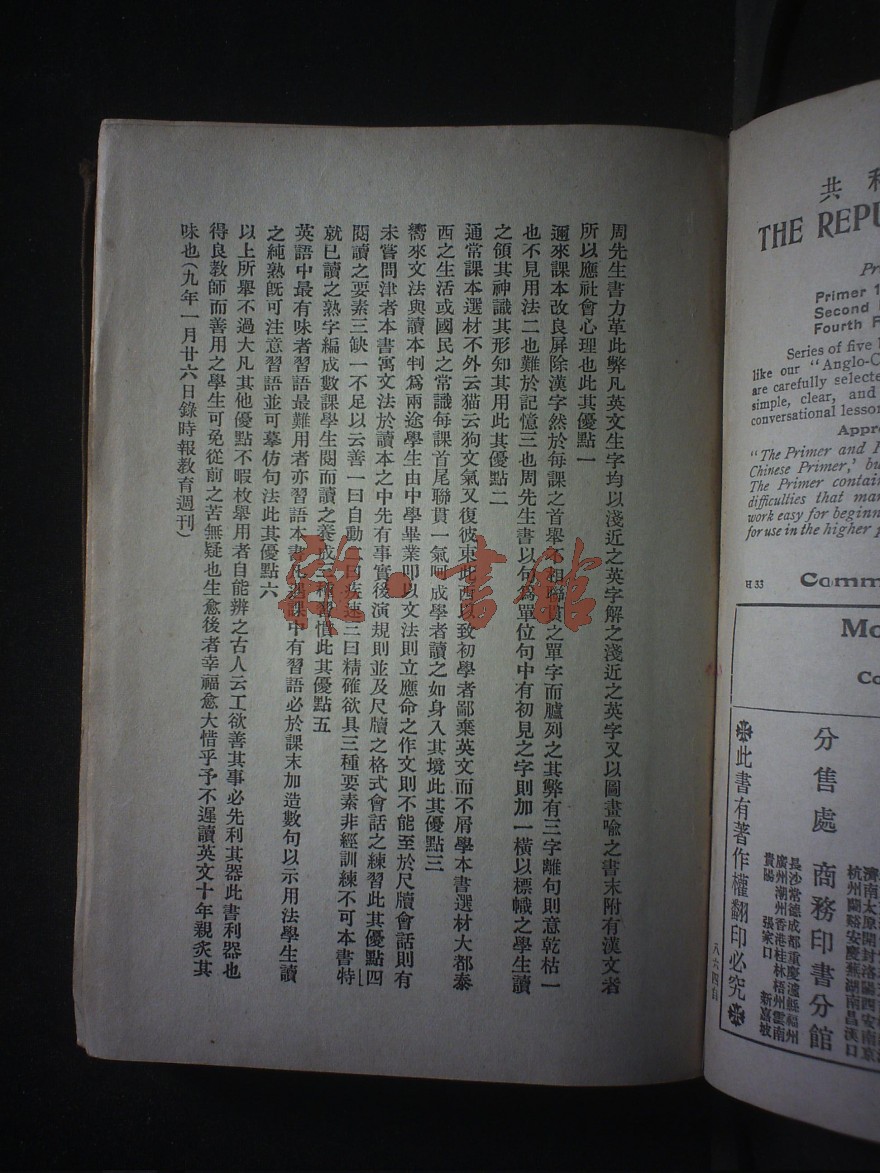 周先生書力革此弊凡英文生字均以淺近之英字解之淺近之英字又以圖畫喩之書末附有漢文者
所以應社會心理也此其優點一
邇來課本改良屏除漢字然於每課之首舉不相聯貫之單字而臚列之其弊有三字離句則意乾枯一
也不見用法二也難於記憶三也周先生書以句爲單位句中有初見之字則加一橫以標幟之學生讀
之領其神識其形知其用此其優點二
通常課本選材不外云猫云狗文氣又復彼東此西以致初學者鄙棄英文而不屑學本書選材大都泰
西之生活或國民之常識每課首尾聯貫一氣呵成學者讀之如身入其境此其優點三
嚮來文法與讀本判爲兩途學生由中學畢業叩以文法則立應命之作文則不能至於尺牘會話則有
未嘗問津者本書寓文法於讀本之中先有事實後演規則並及尺牘之格式會話之練習此其優點四
閱讀之要素三缺一不足以云善一曰自動二曰疾速三曰精確欲具三種要素非經訓練不可本書特
就已讀之熟字編成數課學生閱而讀之養成三種習慣此其優點五
英語中最有味者習語最難用者亦習語本書凡遇課中有習語必於課末加造數句以示用法學生讀
之純熟旣可注意習語並可摹仿句法此其優點六
以上所舉不過大凡其他優點不暇枚舉用者自能辨之古人云工欲善其事必先利其器此書利器也
得良教師而善用之學生可免從前之苦無疑也生愈後者幸福愈大惜乎予不遲讀英文十年親炙其
味也(九年一月廿六日錄時報教育週刊)
龍·書館
共和
THE REPU
Pr
Primer 1
Second
Fourth F
Series of five
like our "Anglo-C
are carefully selecte
simple, clear, and
conversational lesson
Appro
"The Primer and
Chinese Primer,' bu
The Primer contain
difficulties that mar
work easy for beginn
for use in the higher p
H 33 Comm
Mo
Co
分售處 商務印書分館
長沙常德成都重慶瀘縣福州
廣州潮州香港桂林梧州雲南
貴陽 張家口 新嘉坡
※此書有著作權翻印必究※
八六四自